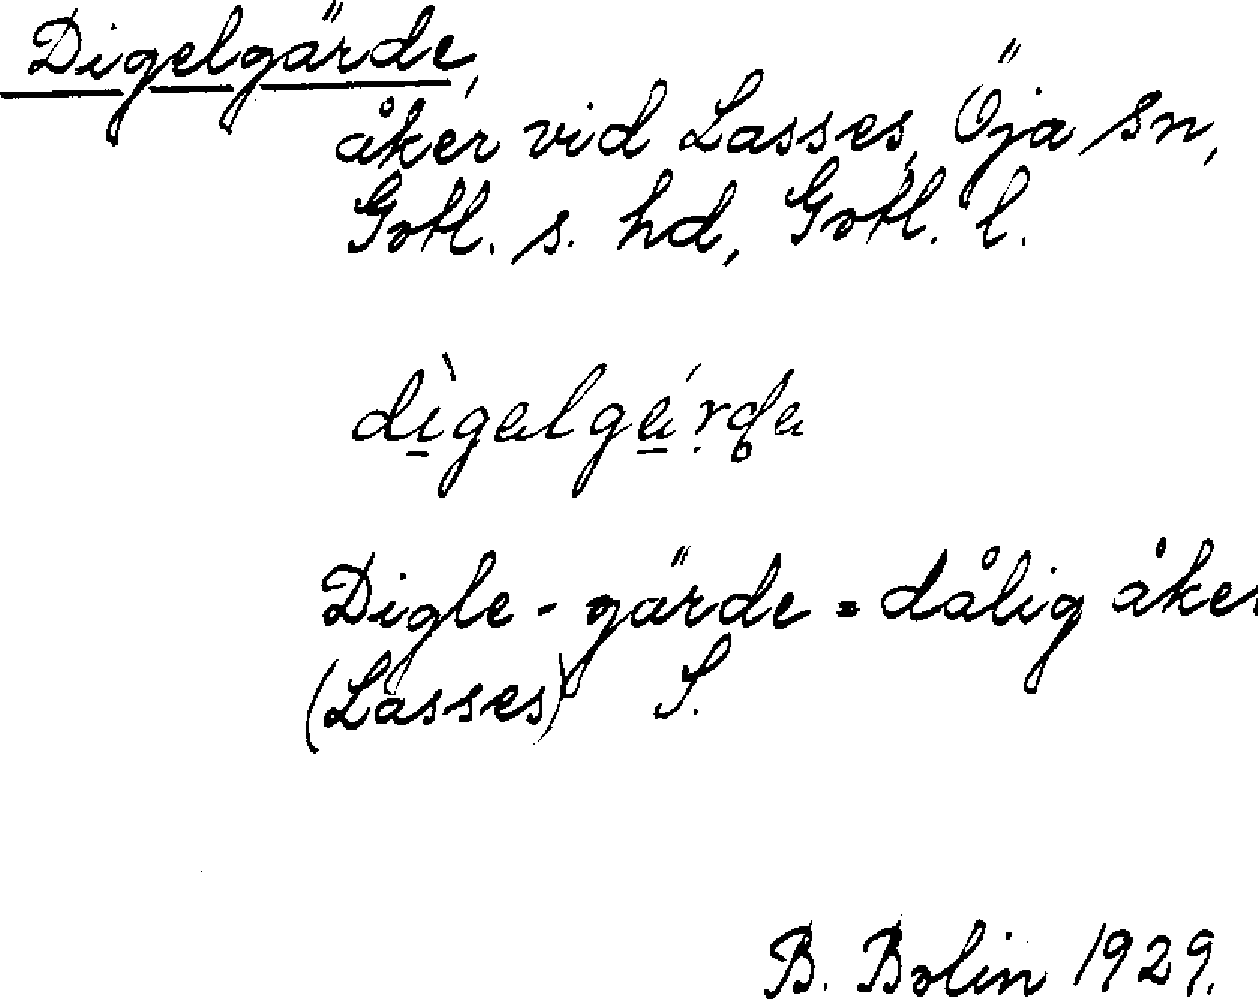 Digelgärde,
åker vid Lasses, Öja sn,
Gotl. s. hd, Gotl. l.
Digle-gärde = dålig åker
(Lasses) S.
B. Bolin 1929.